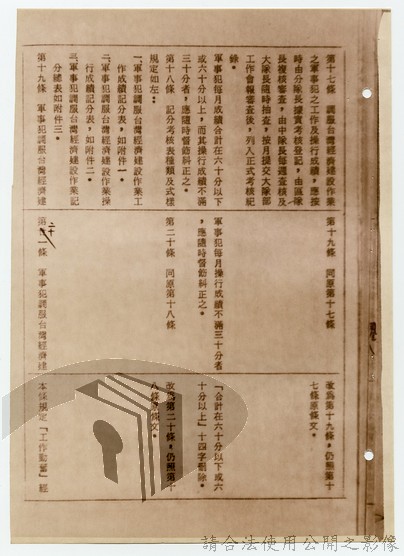 第十七條　調服台灣經濟建設作業
之軍事犯之工作及操行成績，應按
時由分隊長據實考核登記，由區隊
長複核審查，由中隊長每週審查核及
大隊長隨時抽查，按月提交大隊部
工作會報審查後，列入正式考核紀
錄。
軍事犯每月成績合計在六十分以下
或六十分以上，而其操行成績不滿
三十分者，應隨時督飭糾正之。
第十八條　記分考核表種類及式樣
規定如左：
一、軍事犯調服台灣經濟建設作業工
作成績記分表，如附件一。
二、軍事犯調服台灣經濟建設作業操
行成績記分表，如附件二。
三、軍事犯調服台灣經濟建設作業記
分總表如附件三。
第十九條　軍事犯調服台灣經濟建
第十九條　同原第十七條
軍事犯每月操行成績不滿三十分者
，應隨時督飭糾正之。
第二十條　同原第十八條
第二十一條　軍事犯調服台灣經濟建
改為第十九條，仍照第十
七條原條文。
「合計在六十分以下或六
十分以上」十四字刪除。
改為第二十條，仍照第十
八條原條文。
本條規定「工作勤奮」經
請合法使用公開之影像